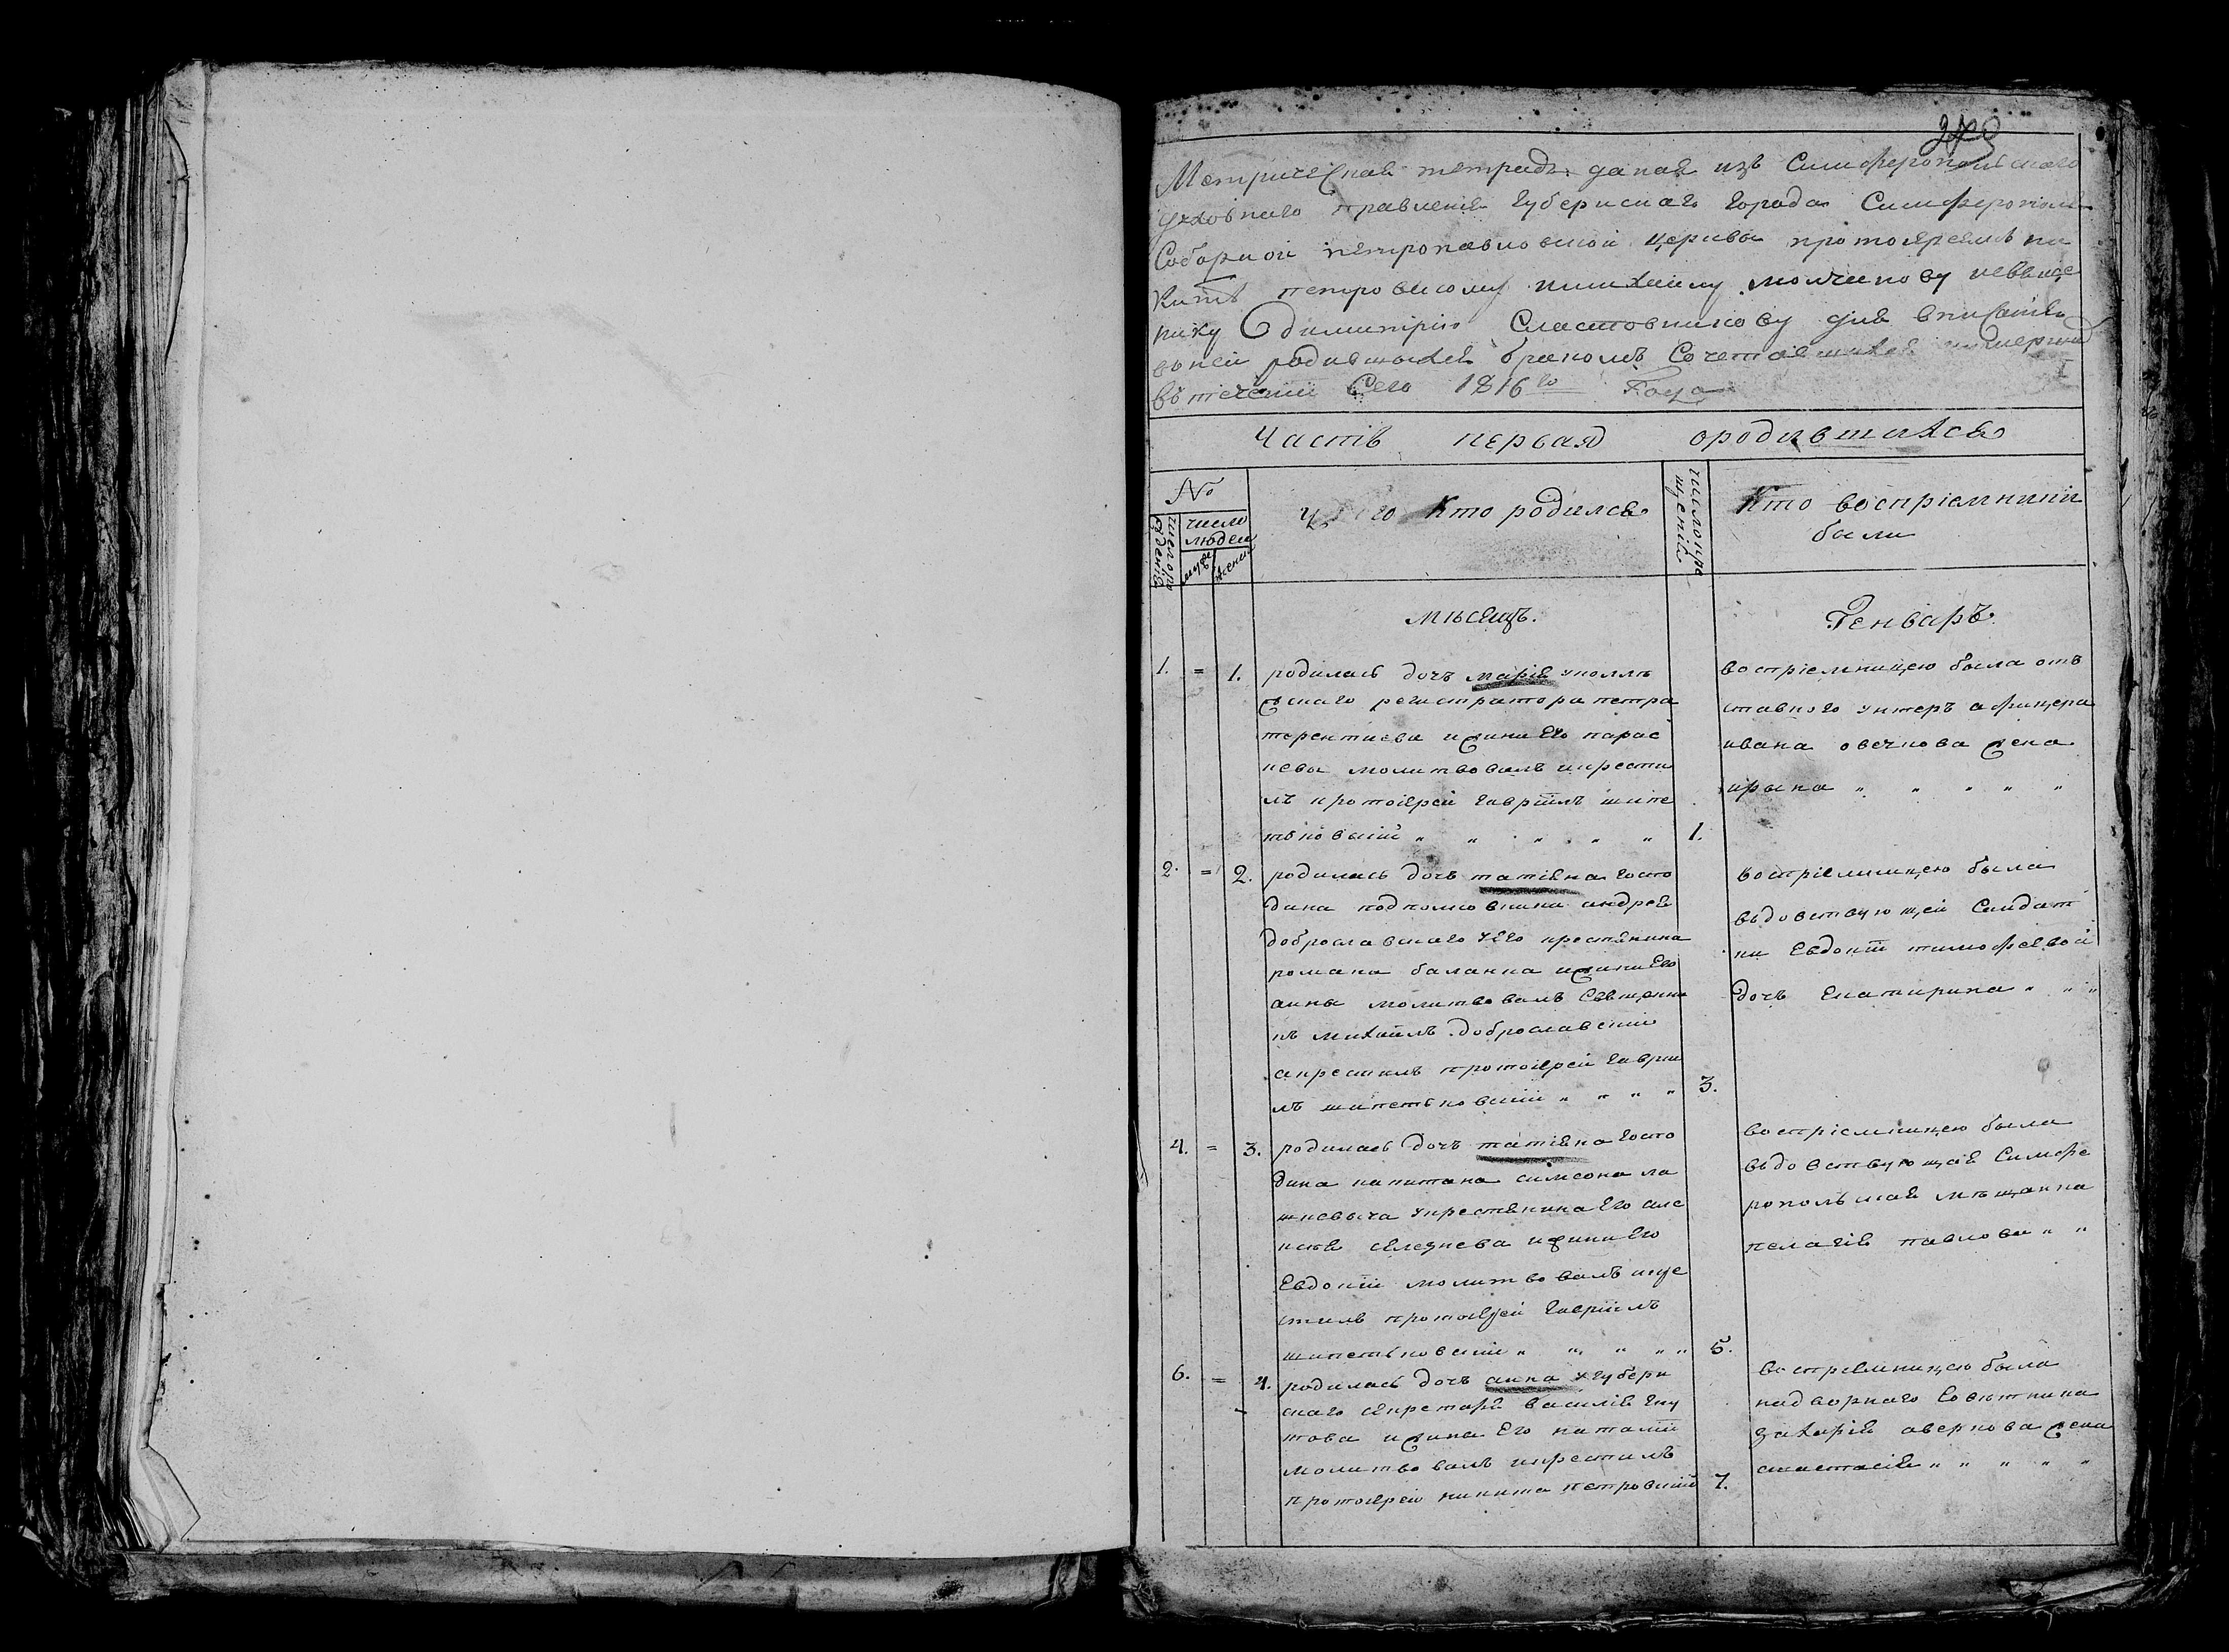 Метрическая тетрадь даная изъ Симферопольскаго
духовнаго правленія губернскаго города Симферополя
Соборной петропавловской церквы протоіереямъ ни
китѣ петровскому михаилу молчанову и священ
нику Димитрію Сластовникову для вписанія
въ ней родившыхся бракомъ Сочетавшихся и умершихъ
въ теченіи Сего 1816го Года
I
Часть первая ородившихся
№
число ро
жденія
число
людей
муж
женск
У кого Кто родился
число кре
щенія
Кто воспріемники
были
мѣсяцъ.
Генваръ
1. = 1. родилась дочъ марія у колле
жскаго регистратора петра
терентиева и жини Его парас
кевы молитвовалъ и крести
лъ протоіерей гавріилъ шипе
тковскій „ „ „ „ „ 1.
воспріемницею была отъ
ставного унтеръ афицера
ивана овечкова жена
ирына „ „ „ „ „
2. = 2. родилась дочъ татіяна госпо
дина подполковника андрея
доброславскаго у его крестянина
романа баланна и жини Его
анны молитвовалъ Священни
къ михаилъ доброславскій
а крестилъ протоіерей гаврии
лъ шипетковскій „ „ „ „ 3.
воспріемницею была
вьдовствующей Салдат
ки Евдокіи тимофѣевой
дочъ Екатирина „ „ „
4. = 3. родилась дочъ татіяна госпо
дина капитана симеона ла
шкевыча у крестянина Его але
ксѣя селезнева и жини Его
Евдокіи молитвовалъ икре
стилъ протоіерей гавріилъ
шипетковскій „ „ „ „ „ 5.
воспріемницею была
вьдовствующая Симфе
ропольская мѣщанка
пелагія павлова „ „
6. = 4. родилась дочъ анна у губерн
скаго секретаря василія гну
това и жина Его наталіи
молитвовалъ икрестилъ
протоіерей никита петровскій 7.
воспріемницею была
надворнаго Совѣтника
захарія аверкова жена
анастасія „ „ „ „ „